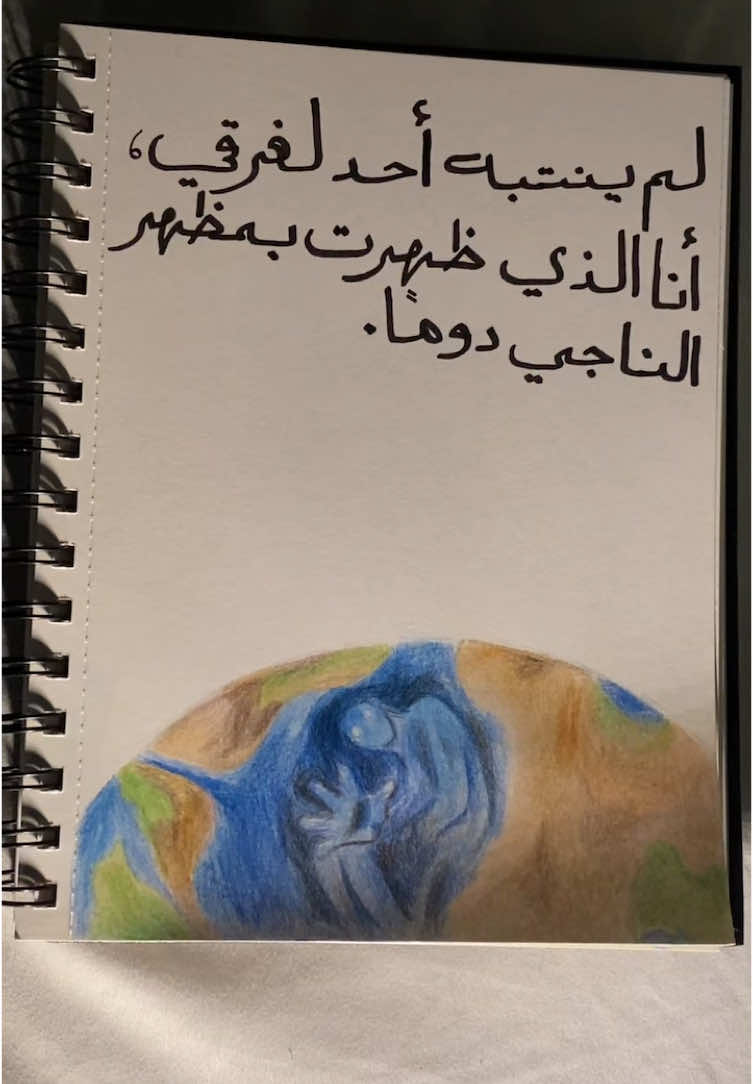 لم ينتبه أحد لغرقي،
أنا الذي ظهرت بمظهر
الناجي دومًا.